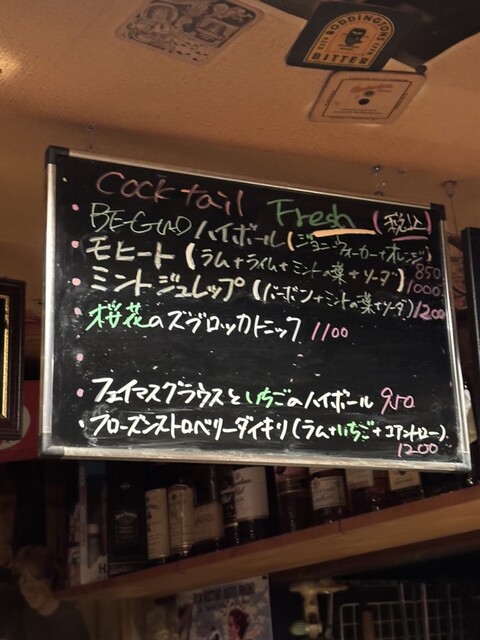 BODDINGTONS
BITTER
Cocktail Fresh (税込)
BEGIN ハイボール(ジョニーウォーカー+オレンジ) 850
モヒート(ラム+ライム+ミントの葉+ソーダ) 1000
ミントジュレップ(バーボン+ミントの葉+ソーダ) 1200
桜花のズブロッカトニック 1100
フェイマスグラウスといちごのハイボール 950
フローズンストロベリーダイキリ(ラム+いちご+コアントロー)
1200